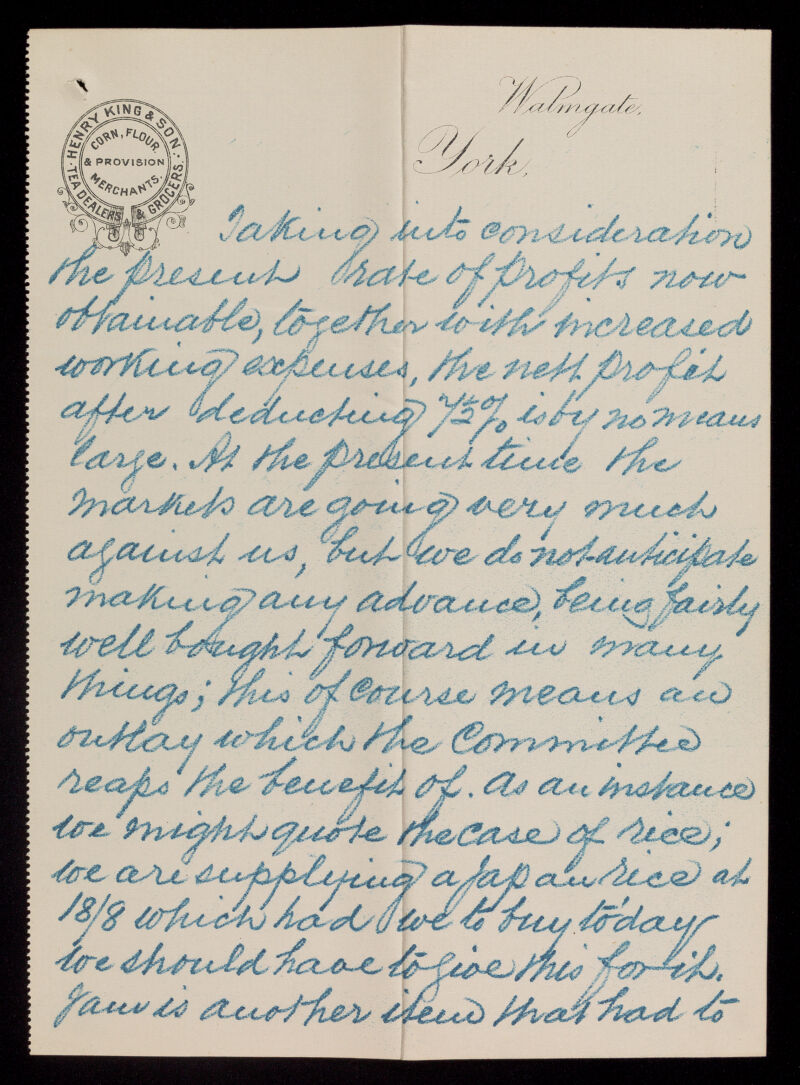 HENRY KING & SON.
TEA DEALERS & GROCERS.
CORN, FLOUR,
& PROVISION
MERCHANTS.
Walmgate,
York,
Taking into consideration
the present rate of profits now
obtainable, together with increased
working expenses, the nett profit
after deducting 7½% is by no means
large. At the present time the
markets are going very much
against us, but we do not anticipate
making any advance, being fairly
well bought forward in many
things; this of course means an
outlay which the Committee
reaps the benefit of. As an instance
we might quote the case of rice;
we are supplying a Japan rice at
18/8 which had we to buy to'day
we should have to give this for it.
Jam is another item that had to